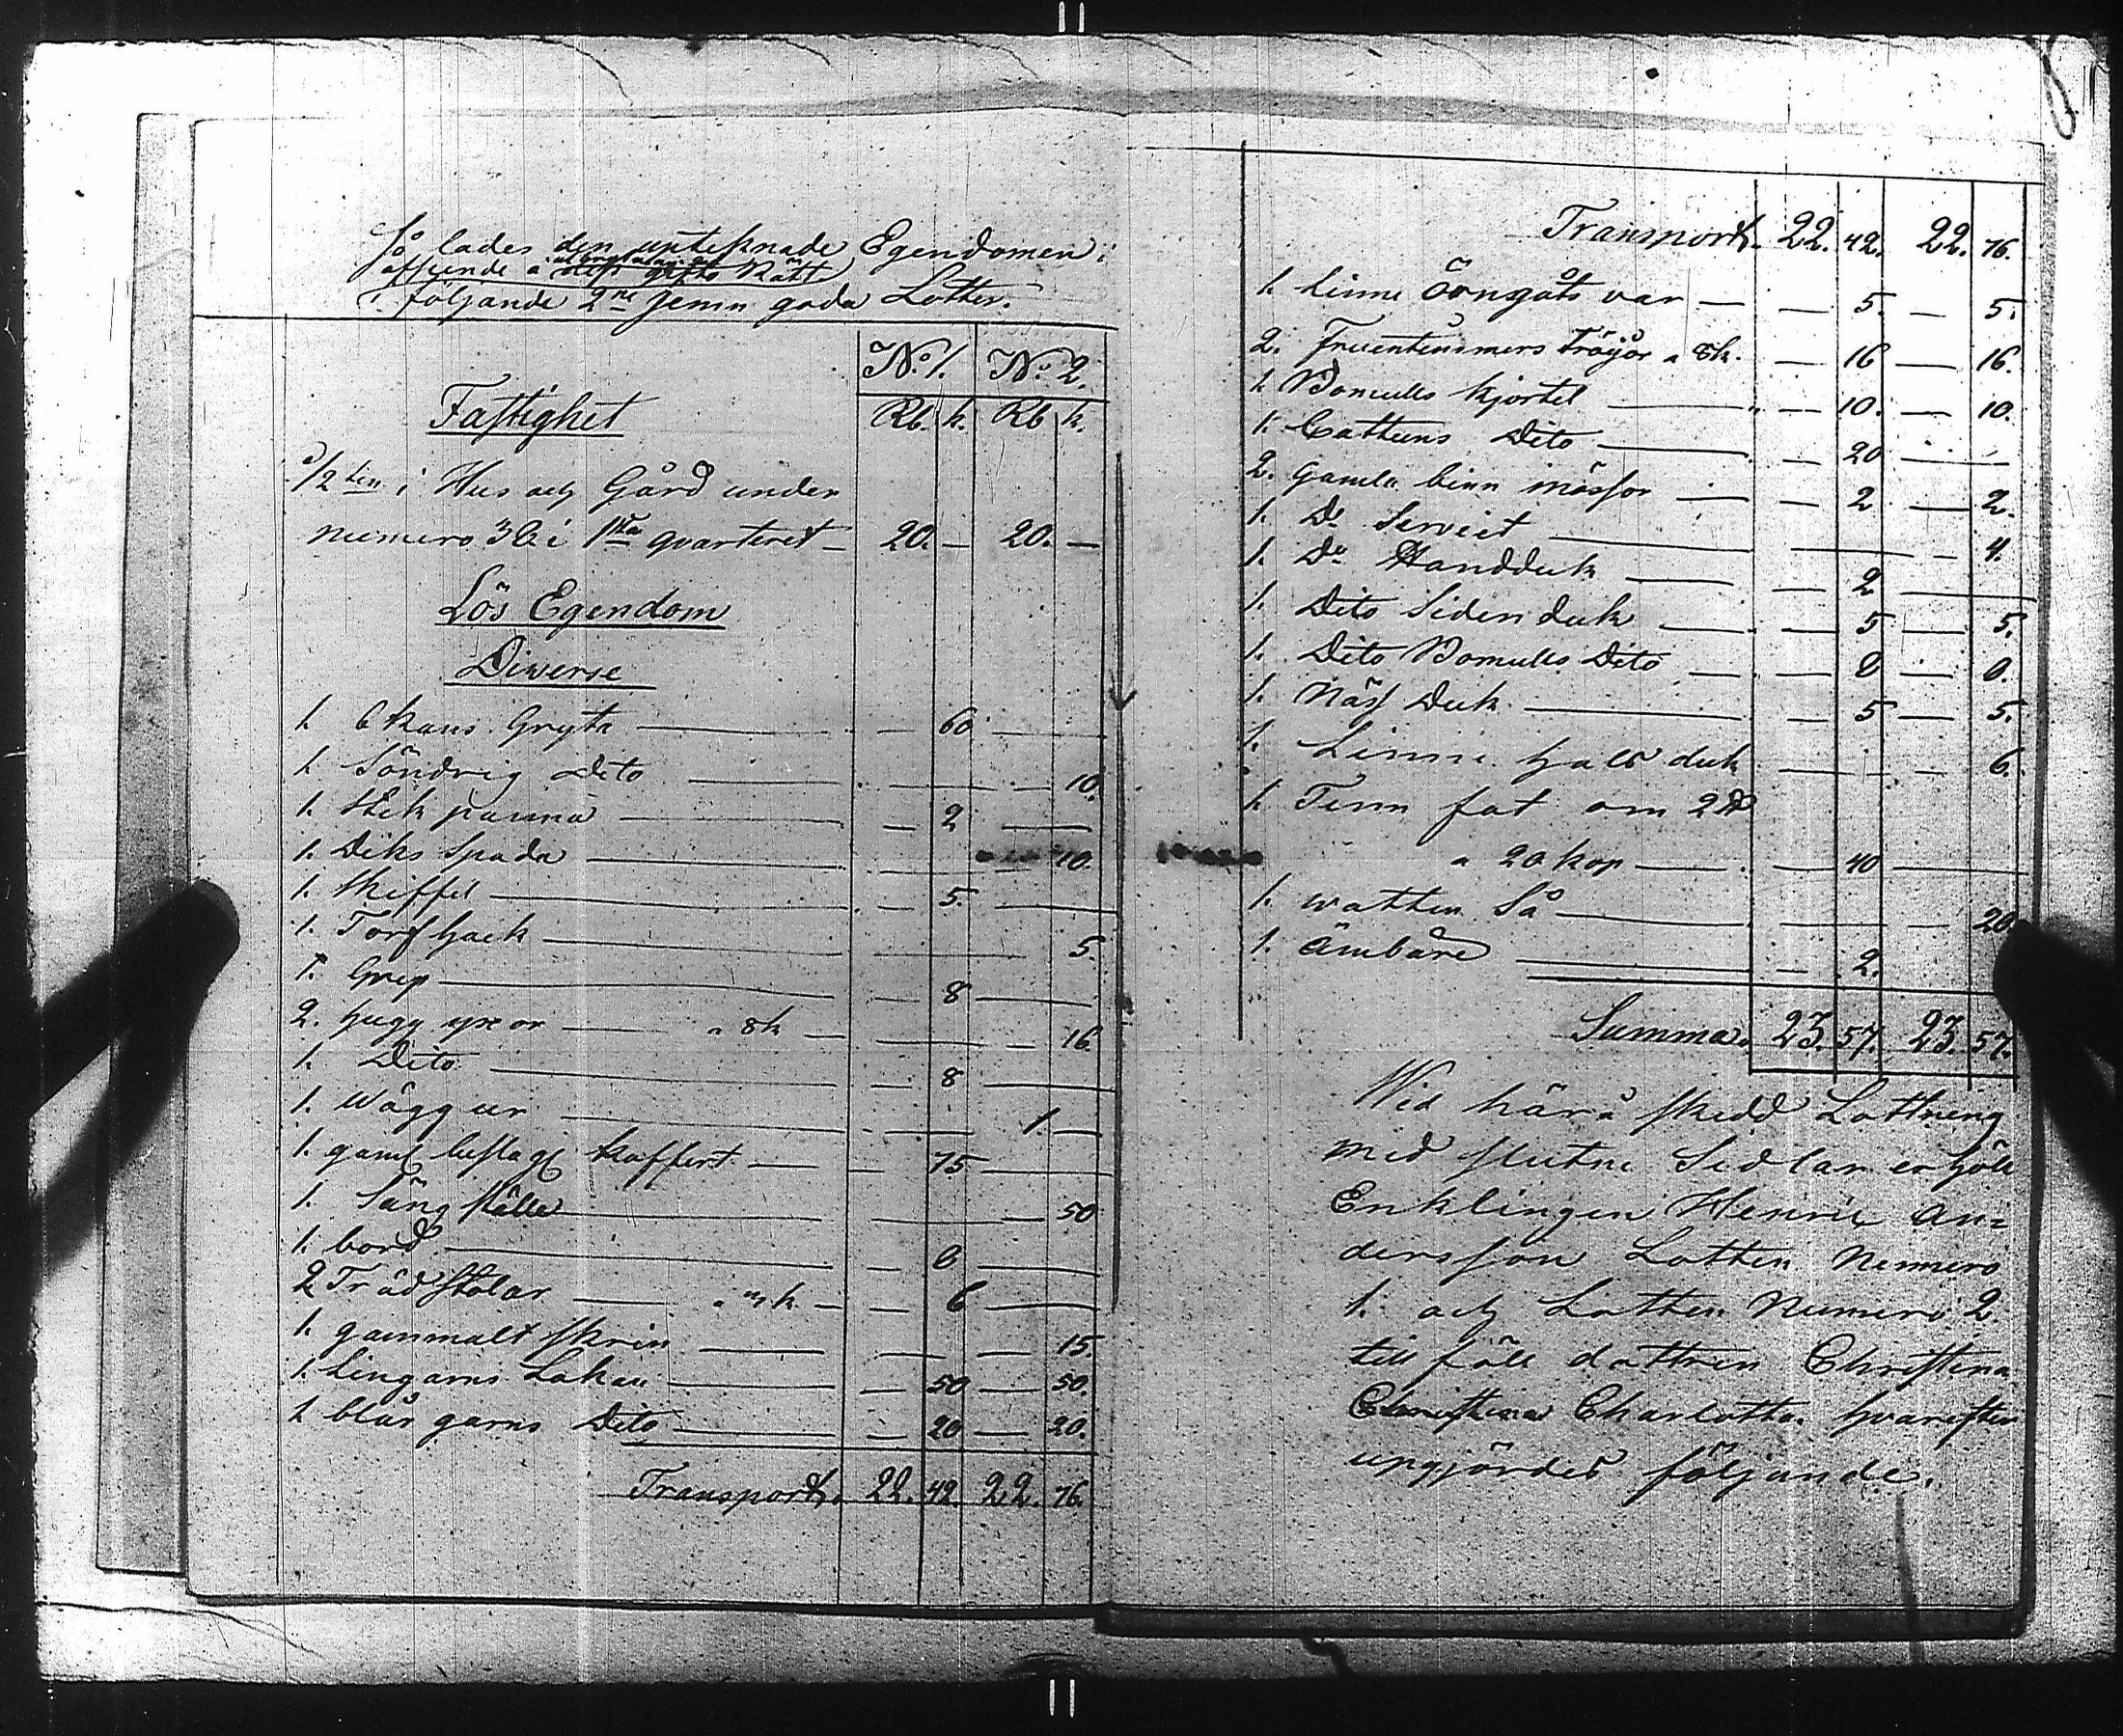 så lades den anteknade Egendomen i
afseende å dess gifto Rätt
i följande 2ne Jemn goda Lotter.
N:o 1. N:o 2.
Fastighet Rb. k. Rb k.
1/2 ten i Hus och Gård under
numero 36 i 1sta qvarteret — 20. — 20. —
Lös Egendom
Diverse
1. 6 kans Gryta — 60 —
1. Söndrig Dito — — 10.
1. Stek panna — 2 —
1. Diks Spada — — 10.
1. Skiffel — 5 —
1. Torf hack — — 5.
1. Grep — 8 —
2. hugg yxor — a 8 k — — 16.
1. Dito — 8 —
1. Wägg ur — 1 —
1. gam beslag Koffert — 75 —
1. Säng ställe — — 50
1. bord — 8 —
2 Träd stolar — a 3 k — 6 —
1. gammalt skrin — — 15.
1. Lingarns Lakan — 50 — 50.
1. blår garns Dito — 20 — 20.
Transport. 22. 42. 22. 76.
Transport. 22. 42. 22. 76.
1. Linne Örngåts var — 5. — 5.
2. Fruentimmers tröijor a 8 k. — 16 — 16.
1. Bomulls kjortel — 10. — 10.
1. Cattuns Dito — 20 —
2. gamla linn mössor — 2 — 2.
1. Do Serviet — — 4.
1. Do Handduk — 2 —
1. Dito Siden duk — 5 — 5.
1. Dito Bomulls Dito — 8 — 8.
1. Näs Duk — 5 — 5.
1. Linne hals duk — — 6.
1. Tenn fat om 2 ℔
a 20 kop — 40 —
1. watten Så — — 20.
1. Ämbare — 2.
Summa. 23. 57. 23. 57.
Wid härå skedd Lottning
med slutne Sedlar erhöll
Enklingen Henric An=
dersson Lotten Numero
1. och Lotten Numero 2.
till föll dottren Christina
Christina Charlotta. hvarefter
upgjordes följande.